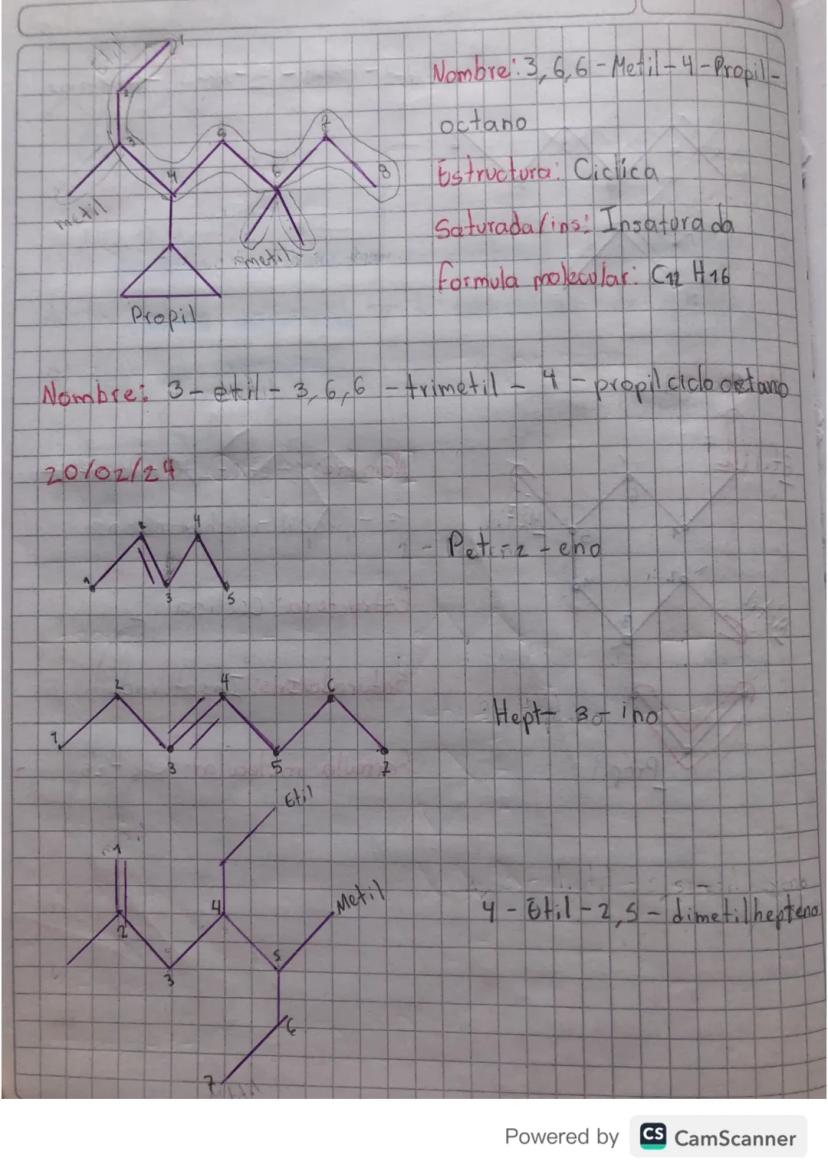 1
2
3
4
5
6
7
8
metil
metil
Propil
Nombre: 3,6,6-Metil-4-Propil-
octano
Estructura: Ciclica
Saturada/ins: Insaturada
Formula molecular: C12 H16
Nombre: 3-etil-3,6,6-trimetil-4-propilciclo octano
20/02/24
1
2
3
4
5
- Pet-2-eno
1
2
3
4
5
6
7
Hept-3-ino
Etil
1
2
3
4
Metil
5
6
7
4-Etil-2,5-dimetilhepteno
Powered by CS CamScanner